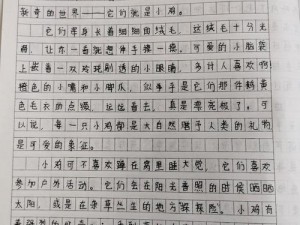 新奇的世界——它们就是小鸡。
它们浑身长着细细的绒毛,这绒毛十分光
滑,让你一看就想伸手摸一摸。可爱的小脑袋
上嵌着一双玲珑剔透的小眼睛,多讨人喜欢啊!
橙色的小嘴和小脚爪,似乎是它们那件鹅黄
色毛衣的点缀,远远看去,真是漂亮极了。可
以说,每一只小鸡都是大自然赠予人类的礼物
是可爱的象征。
小鸡可不喜欢蹲在窝里睡大觉,它们喜欢
参加户外活动。它们会在阳光普照的时候晒晒
太阳,或是在杂草丛生的地方探探险。小鸡有